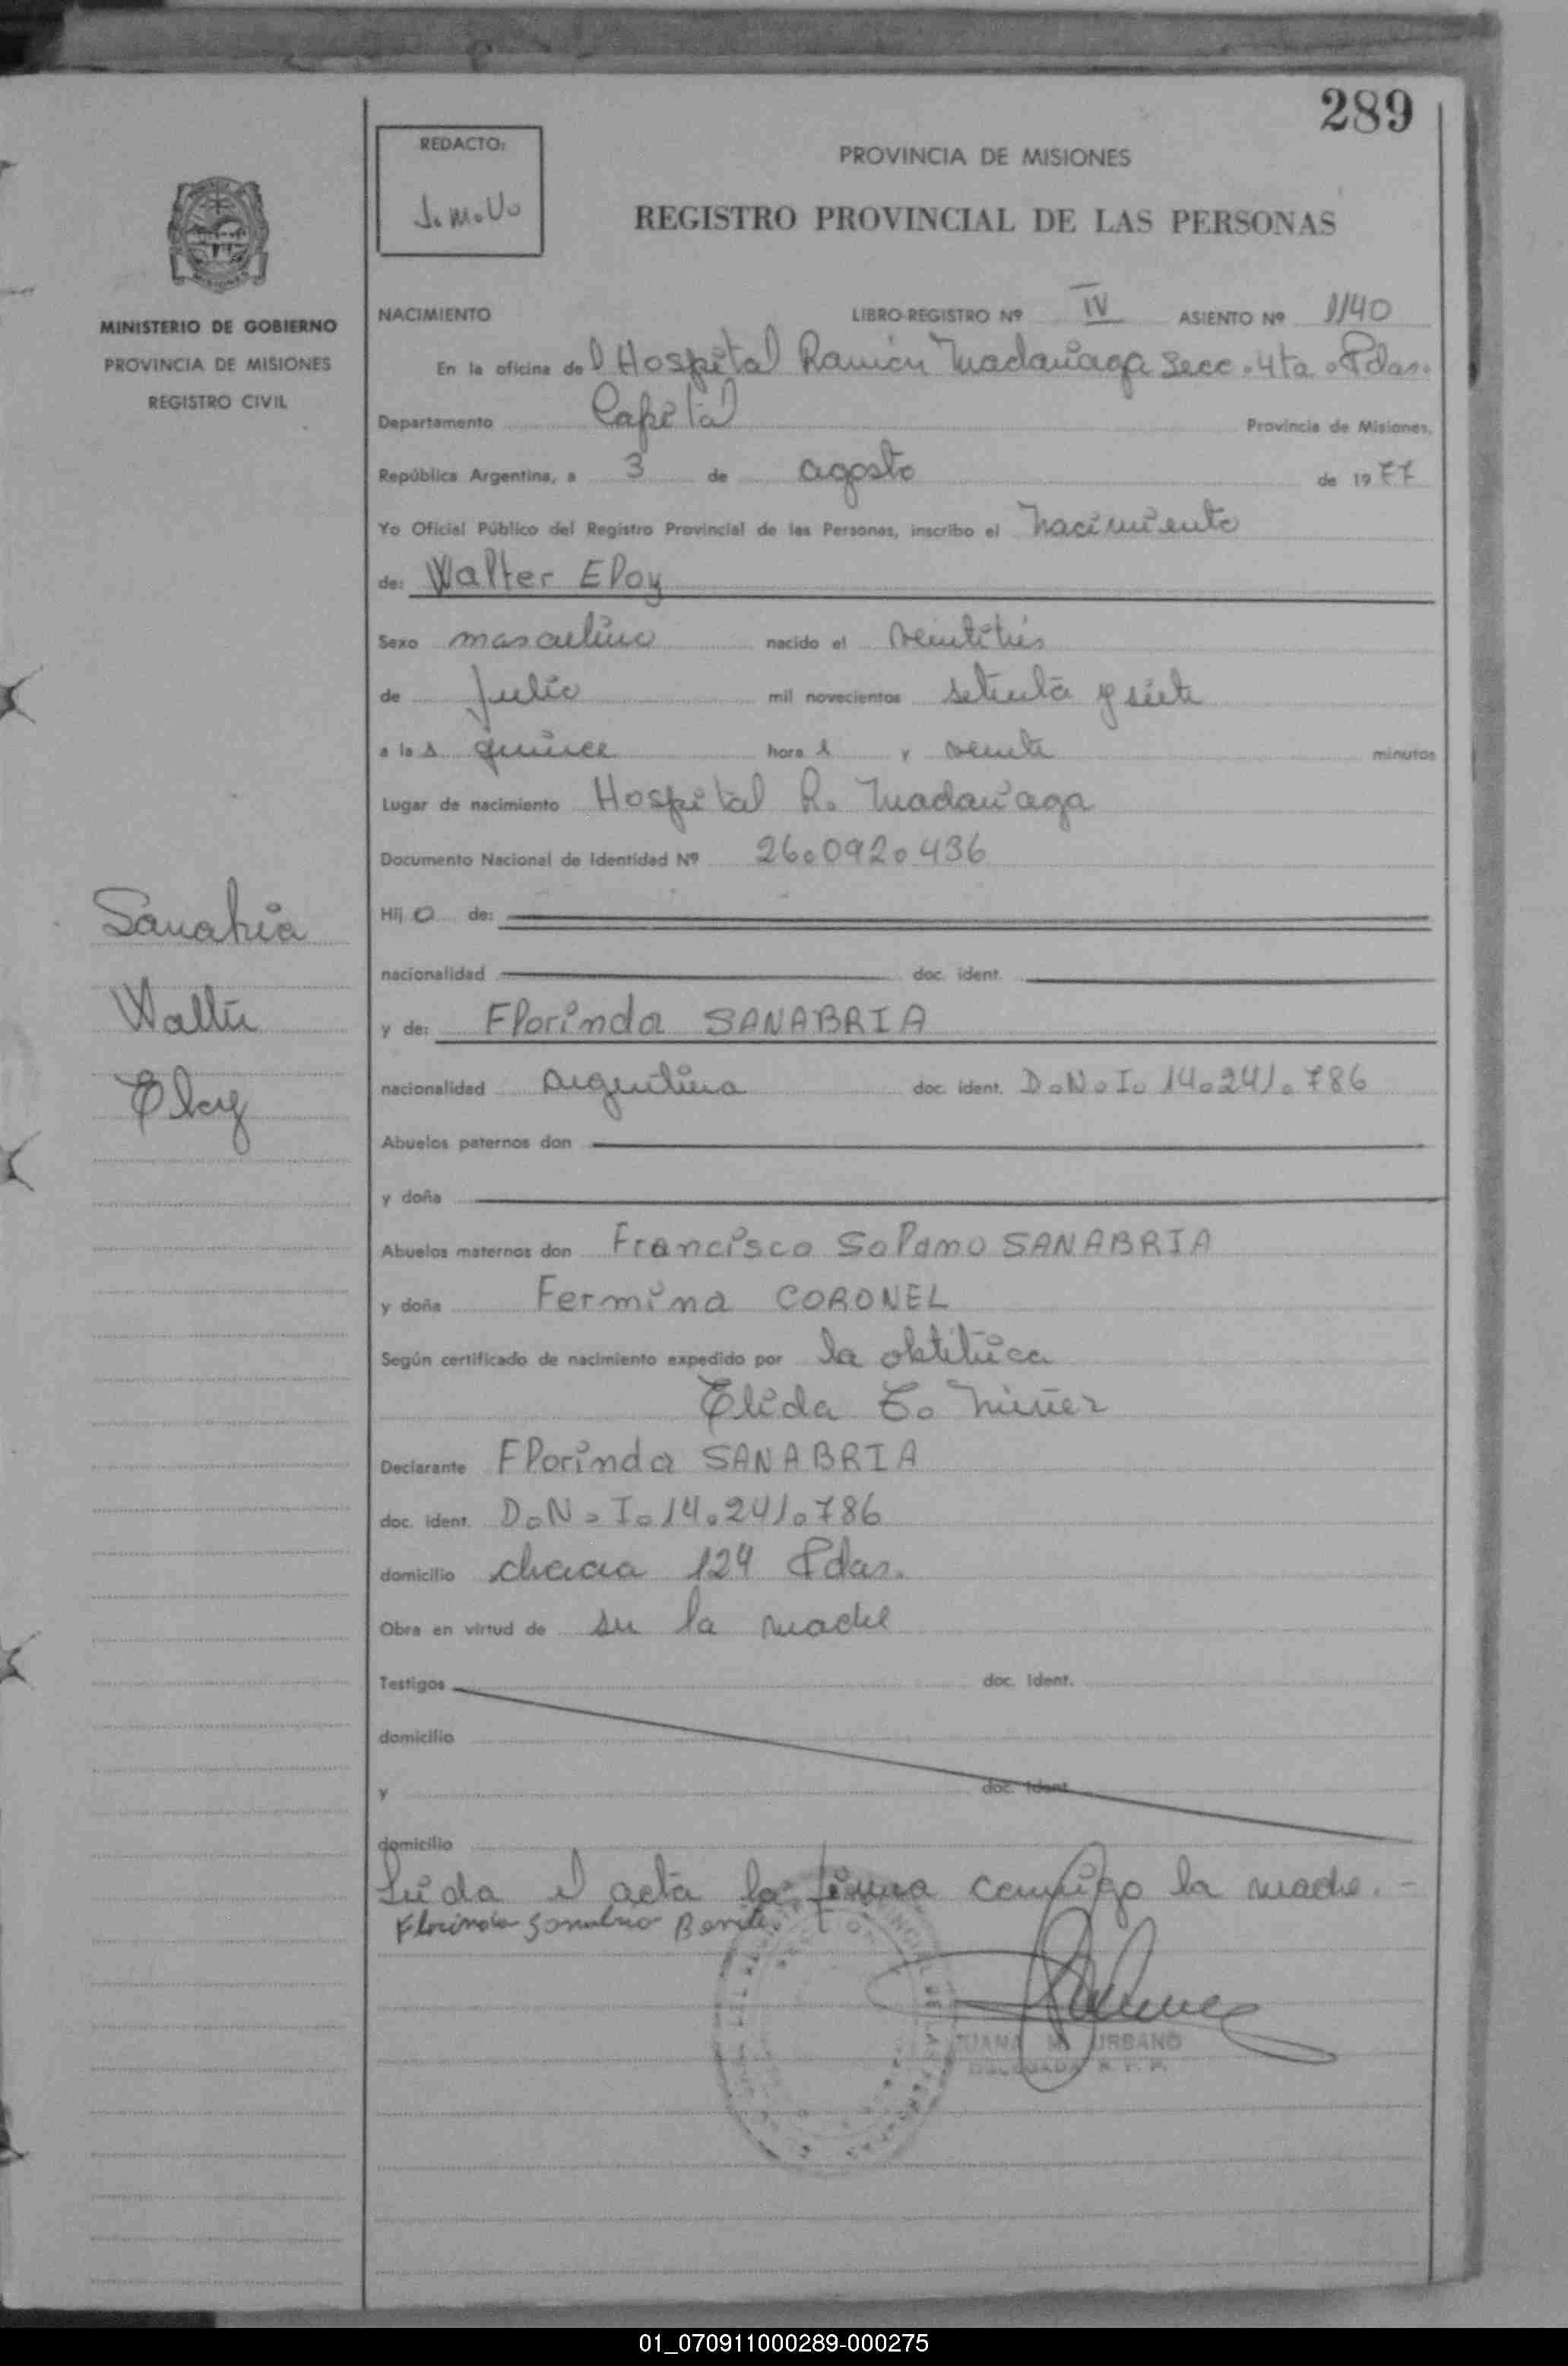 289
REDACTO:
J.M.U.
PROVINCIA DE MISIONES
REGISTRO PROVINCIAL DE LAS PERSONAS
MINISTERIO DE GOBIERNO
PROVINCIA DE MISIONES
REGISTRO CIVIL
NACIMIENTO LIBRO-REGISTRO Nº IV ASIENTO Nº 1140
En la oficina del Hospital Ramón Madariaga Secc. 4ta. Pdas.
Departamento Capital Provincia de Misiones,
República Argentina, a 3 de agosto de 1977
Yo Oficial Público del Registro Provincial de las Personas, inscribo el nacimiento
de: Walter Eloy
Sexo masculino nacido el veintitrés
de julio mil novecientos setenta y siete
a las quince horas y veinte minutos
Lugar de nacimiento Hospital R. Madariaga
Documento Nacional de Identidad Nº 26.092.436
Hijo de:
nacionalidad doc. ident.
y de: Florinda SANABRIA
nacionalidad argentina doc. ident. D.N.I. 14.241.786
Abuelos paternos don
y doña
Abuelos maternos don Francisco Solano SANABRIA
y doña Fermina CORONEL
Según certificado de nacimiento expedido por la obstétrica
Elida E. Núñez
Declarante Florinda SANABRIA
doc. ident. D.N.I. 14.241.786
domicilio chacra 124 Pdas.
Obra en virtud de su la madre
Testigos doc. ident.
domicilio
y doc. ident.
domicilio
Leida el acta la firma conmigo la madre. -
Florinda Sanabria
JUANA M. URBANO
DELEGADA R. P. P.
Sanabria
Walter
Eloy
01_070911000289-000275